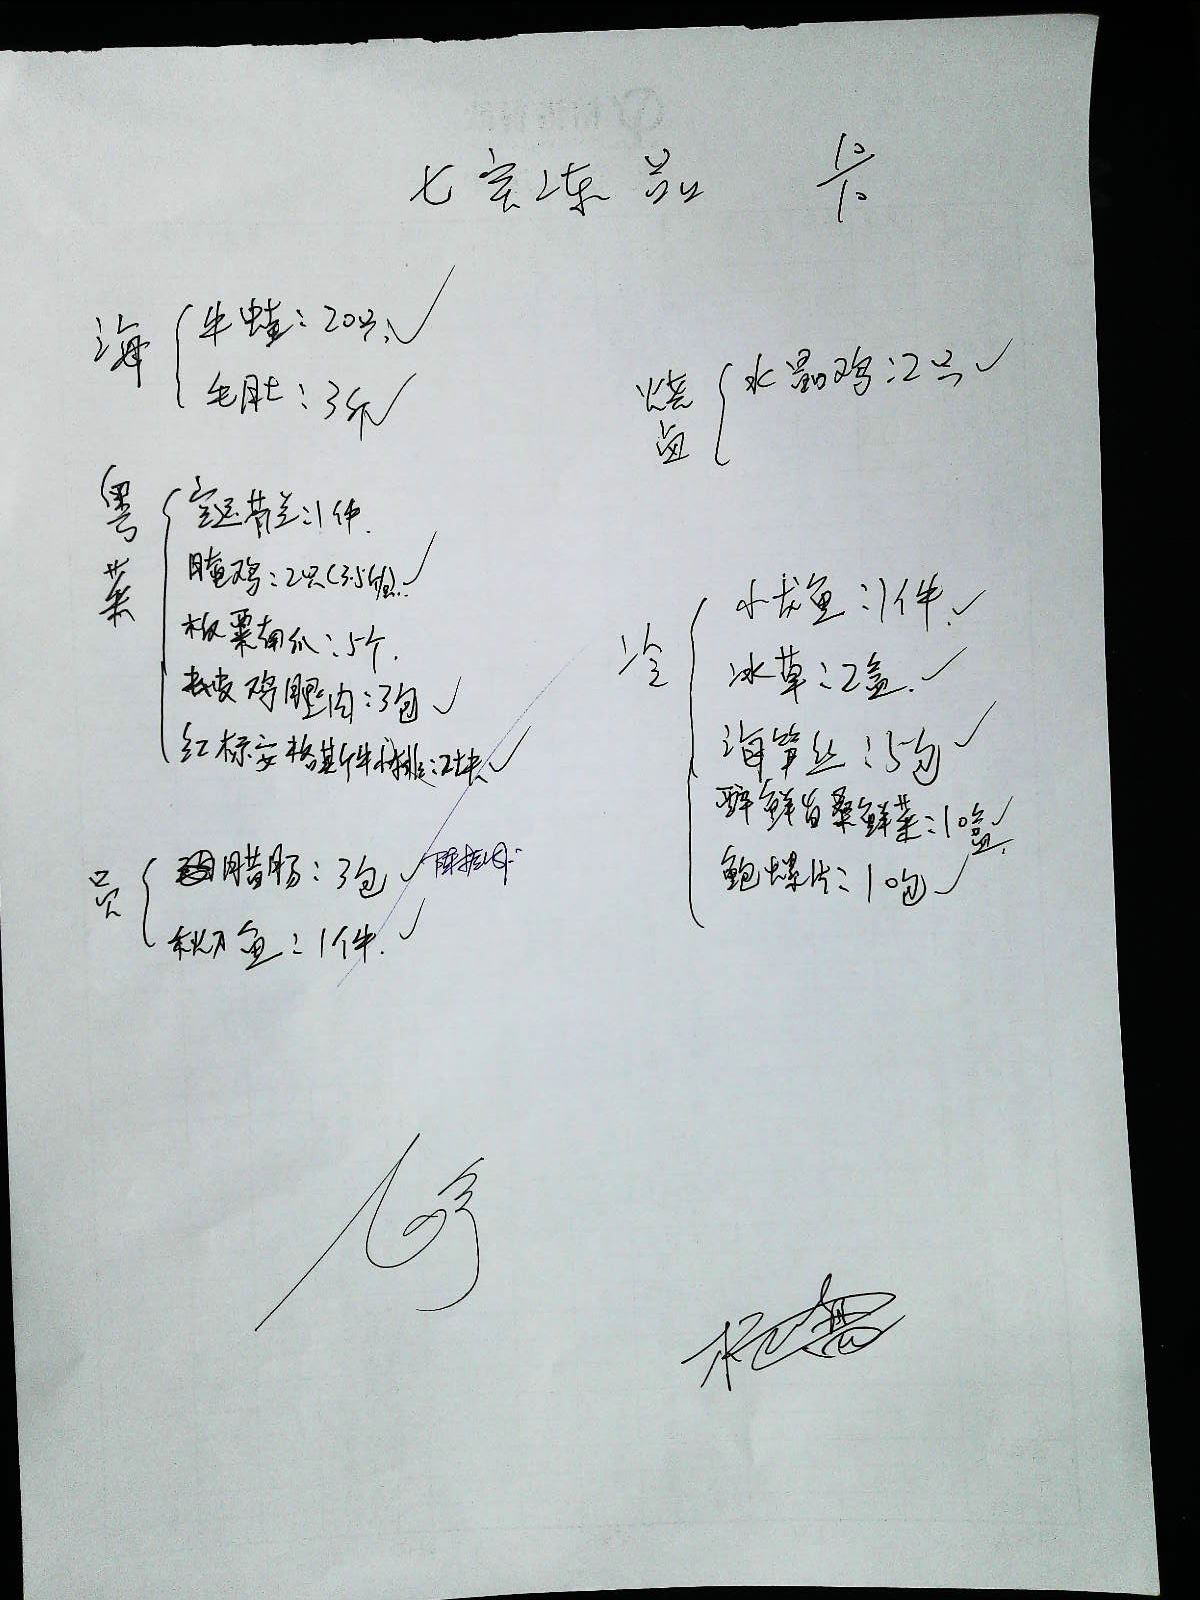 七宝冻品 10/10
海
牛蛙:20只.
毛肚:3斤
粤菜
:1件.
腌鸡:2只(3.5斤)
板栗南瓜:5个.
鸡腿肉:3包
红标安格斯牛排:2块
员
腊肠:3包
秋刀鱼:1件.
烧卤
水晶鸡:2只
冷
小龙鱼:1件.
冰草:2盒.
海笋丝:5包
鲜菜:10盒.
鲍螺片:10包